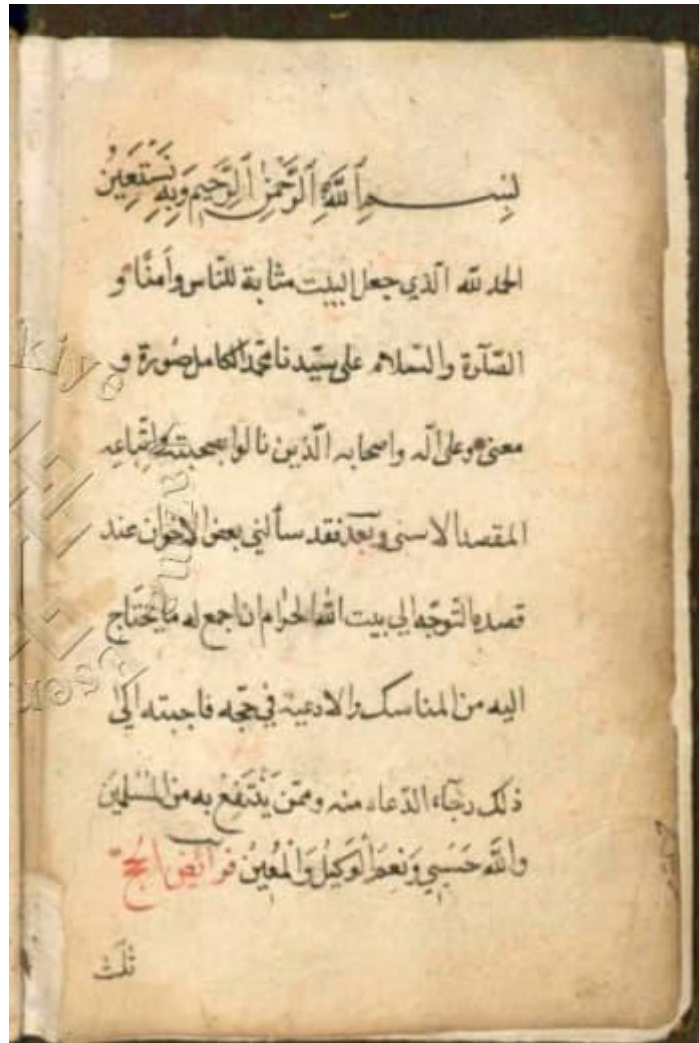 بِسْمِ ٱللَّهِ ٱلرَّحْمٰنِ ٱلرَّحِيمِ وَبِهِ نَسْتَعِينُ
الحمد لله الّذي جعل البيت مثابة للنّاس وأمنًا و
الصّلوة والسّلام على سيّدنا محمّد الكامل صورة و
معنى وعلى آله واصحابه الّذين نالوا بصحبته واتّباعه
المقصد الاسنى وبعد فقد سألني بعض الاخوان عند
قصده التوجّه الي بيت الله الحرام ان اجمع له ما يحتاج
اليه من المناسك والادعية في حجّه فاجبته الى
ذلك رجآء الدّعاء منه وممّن يَنْتَفِعُ به من المسلمين
والله حَسْبِي وَنِعْمَ الْوَكِيلُ وَالْمُعِينُ فرآئض الحجّ
ثلث